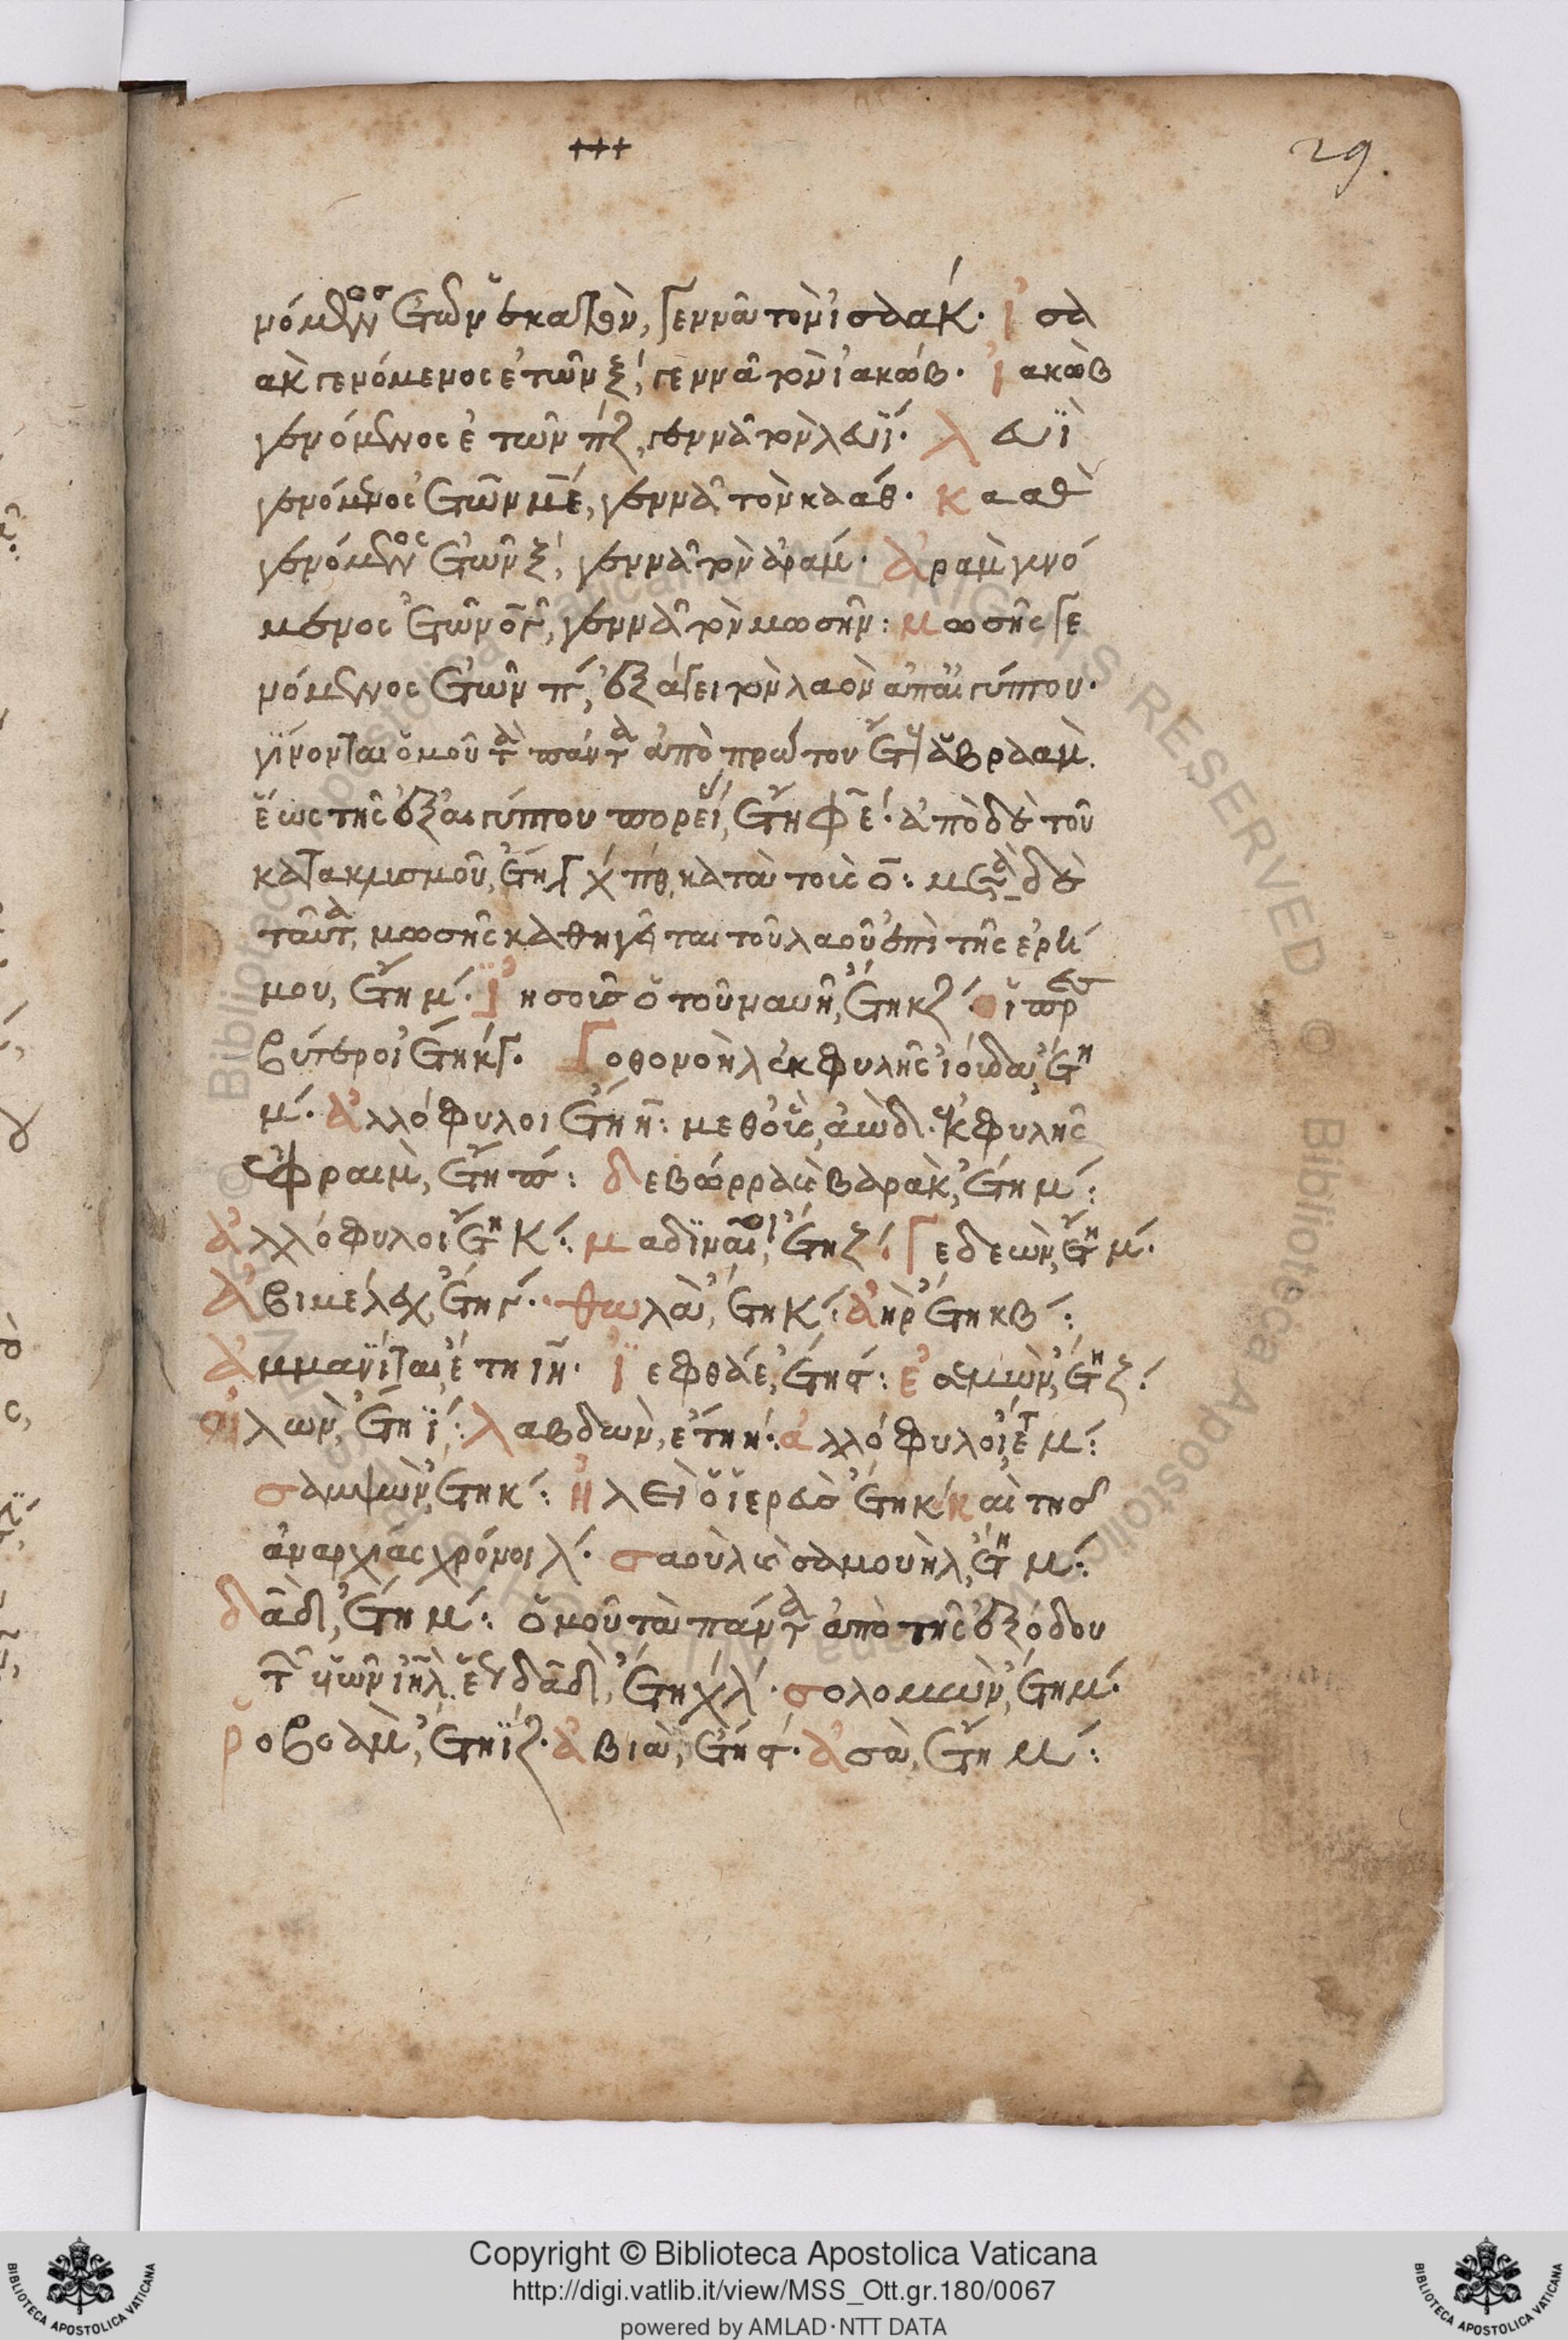 +++
29.
μόμενος ἐτῶν ἑκατὸν, γεννᾶ τὸν ἰσαάκ· ἰσα
ὰκ γενόμενος ἐτῶν ξ΄, γεννᾶ τὸν ἰακώβ· ἰακὼβ
γενόμενος ἐτῶν πζ, γεννᾶ τὸν λευΐ· λευῒ
γενόμενος ἐτῶν με, γεννᾶ τὸν καάθ· κααθ
γενόμενος ἐτῶν ξ΄, γεννᾶ τὸν ἀράμ· ἀρὰμ γενό
μενος ἐτῶν ογ, γεννᾶ τὸν μωσῆν: μωσῆς γε
νόμενος ἐτῶν π΄, ἐξάγει τὸν λαὸν ἀπ αἰγύπτου·
γίνονται ὁμοῦ τὰ πάντα ἀπὸ πρώτου ἔτους ἀβραὰμ.
ἕως τῆς ἐξ αἰγύπτου πορεί, ἔτη φε· ἀπὸ δὲ τοῦ
κατακλισμοῦ, ἔτη χπθ, κατὰ τοὺς ο: μετὰ δὲ
ταῦτα, μωσῆς καθηγεῖται τοῦ λαοῦ ἐπὶ τῆς ἐρή
μου, ἔτη μ΄· ἰησοῦς ὁ τοῦ ναυῆ, ἔτη κζ΄· οἱ πρεσ
βύτεροι ἔτη κγ· γοθονοὴλ ἐκ φυλῆς ἰούδα, ἔτη
μ΄· ἀλλόφυλοι ἔτη η: μεθ οὓς, ἀώδ· ἐκ φυλῆς
ἐφραιμ, ἔτη π: δεβώρρα καὶ βαρὰκ, ἔτη μ΄:
ἀλλόφυλοι ἔτη κ΄: μαδιναῖοι, ἔτη ζ΄: γεδεὼν, ἔτη μ΄·
ἀβιμέλεχ, ἔτη γ΄· θωλὰ, ἔτη κ΄: ἀὴρ ἔτη κβ΄:
ἀμμανῖται, ἔτη ιη· ἰεφθάε, ἔτη ϛ: ἐσεμὼν, ἔτη ζ΄:
αἰλὼν, ἔτη ϊ΄: λαβδὼν, ἔτη η΄: ἀλλόφυλοι, ἔτ μ΄:
σαμψὼν, ἔτη κ΄: ἠλεὶ ὁ ἱερεὺσ ἔτη κ΄ καὶ τησ
ἀναρχίας χρόνοι λ΄· σαοὺλ καὶ σαμουὴλ, ἔτη μ΄:
δαδ, ἔτη μ΄: ὁμοῦ τὰ πάντα ἀπὸ τῆς ἐξόδου
τῶν υἱῶν ιηλ ἕως δαδ, ἔτη χλ΄· σολομὼν, ἔτη μ΄·
ῥοβοὰμ, ἔτη ϊζ· ἀβιὰ, ἔτη ϛ΄· ἀσὰ, ἔτη μ΄:
Copyright © Biblioteca Apostolica Vaticana
http://digi.vatlib.it/view/MSS_Ott.gr.180/0067
powered by AMLAD·NTT DATA